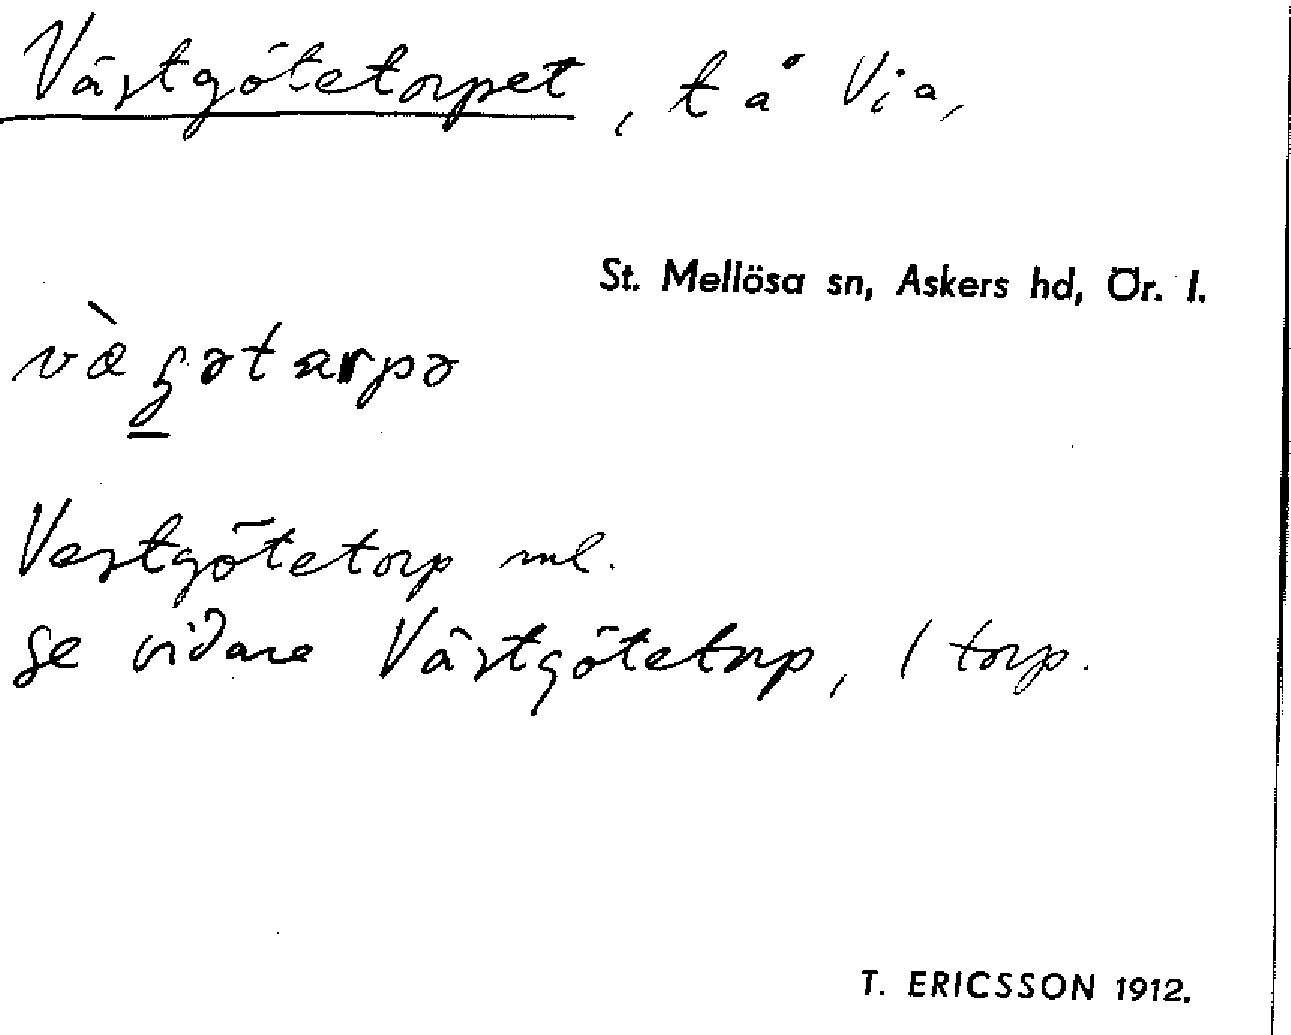 Västgötetorpet, t å Via,
St. Mellösa sn, Askers hd, Ör. l.
Vestgötetorp ml.
Se vidare Västgötetorp, 1 torp.
T. ERICSSON 1912.